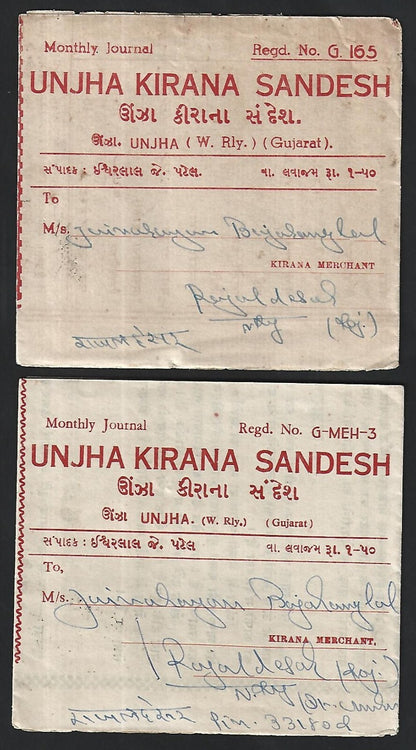 Monthly Journal Regd. No. G. 165
UNJHA KIRANA SANDESH
ઊંઝા કીરાના સંદેશ.
ઊંઝા. UNJHA (W. Rly.) (Gujarat).
સંપાદક : ઈશ્વરલાલ જે. પટેલ. વા. લવાજમ રૂા. ૧-૫૦
To
M/s. Jainarayan Bajranglal
KIRANA MERCHANT
Rajaldesar
NRly (Raj.)
Monthly Journal Regd. No. G-MEH-3
UNJHA KIRANA SANDESH
ઊંઝા કીરાના સંદેશ
ઊંઝા UNJHA. (W. Rly.) (Gujarat)
સંપાદક : ઈશ્વરલાલ જે. પટેલ વા. લવાજમ રૂા. ૧-૫૦
To,
M/s. Jainarayan Bajranglal
KIRANA MERCHANT.
Rajaldesar (Raj.)
N.Rly
Pin. 331802